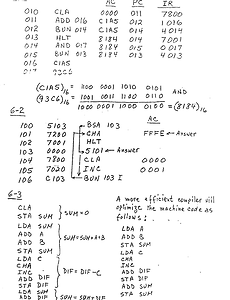 AC PC IR
010 CLA 0000 011 7800
011 ADD 016 C1A5 012 1016
012 BUN 014 C1A5 014 4014
013 HLT 8184 014 7001
014 AND 017 8184 015 0017
015 BUN 013 8184 013 4013
016 C1A5
017 93C6
(C1A5)16 = 1100 0001 1010 0101 AND
(93C6)16 = 1001 0011 1100 0110
1000 0001 1000 0100 = (8184)16
6-2
AC
100 5103 BSA 103
101 7200 CMA FFFE ← Answer
102 7001 HLT
103 0000 5101 ← Answer
104 7800 CLA 0000
105 7020 INC 0001
106 C103 BUN 103 I
6-3
CLA
STA SUM SUM=0
LDA SUM
ADD A
ADD B SUM=SUM+A+B
STA SUM
LDA C
CMA
INC DIF=DIF-C
ADD DIF
STA DIF
LDA SUM
ADD DIF SUM=SUM+DIF
A more efficient compiler will
optimize the machine code as
follows:
LDA A
ADD B
STA SUM
LDA C
CMA
INC
ADD DIF
STA DIF
ADD SUM
STA SUM